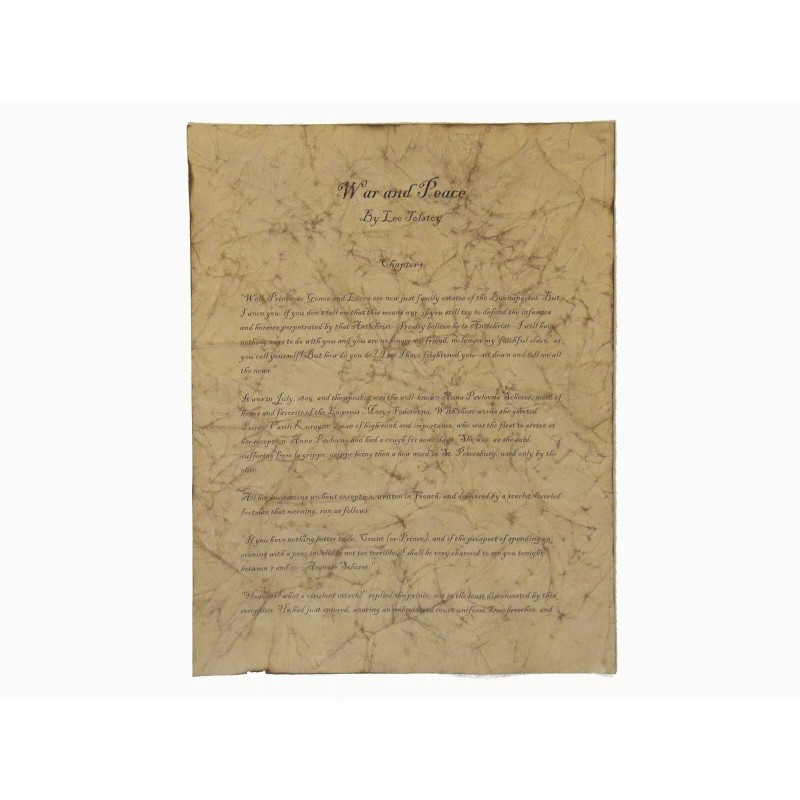 War and Peace
By Leo Tolstoy
Chapter 1
"Well, Prince, so Genoa and Lucca are now just family estates of the Buonapartes. But
I warn you, if you don't tell me that this means war, if you still try to defend the infamies
and horrors perpetrated by that Antichrist- I really believe he is Antichrist- I will have
nothing more to do with you and you are no longer my friend, no longer my 'faithful slave,' as
you call yourself! But how do you do? I see I have frightened you- sit down and tell me all
the news."
It was in July, 1805, and the speaker was the well-known Anna Pavlovna Scherer, maid of
honor and favorite of the Empress Marya Fedorovna. With these words she greeted
Prince Vasili Kuragin, a man of high rank and importance, who was the first to arrive at
her reception. Anna Pavlovna had had a cough for some days. She was, as she said,
suffering from la grippe; grippe being then a new word in St. Petersburg, used only by the
elite.
All her invitations without exception, written in French, and delivered by a scarlet-liveried
footman that morning, ran as follows:
"If you have nothing better to do, Count (or Prince), and if the prospect of spending an
evening with a poor invalid is not too terrible, I shall be very charmed to see you tonight
between 7 and 10- Annette Scherer."
"Heavens! what a virulent attack!" replied the prince, not in the least disconcerted by this
reception. He had just entered, wearing an embroidered court uniform, knee breeches, and